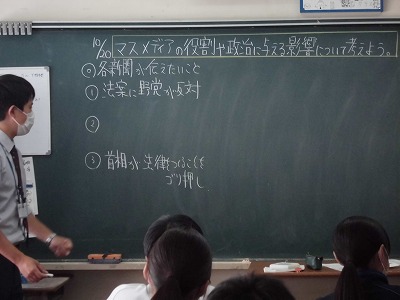 10/20 マスメディアの役割や政治に与える影響について考えよう。
◎各新聞が伝えたいこと
①法案に野党が反対
②
③首相が法律をつくることを
ゴリ押し